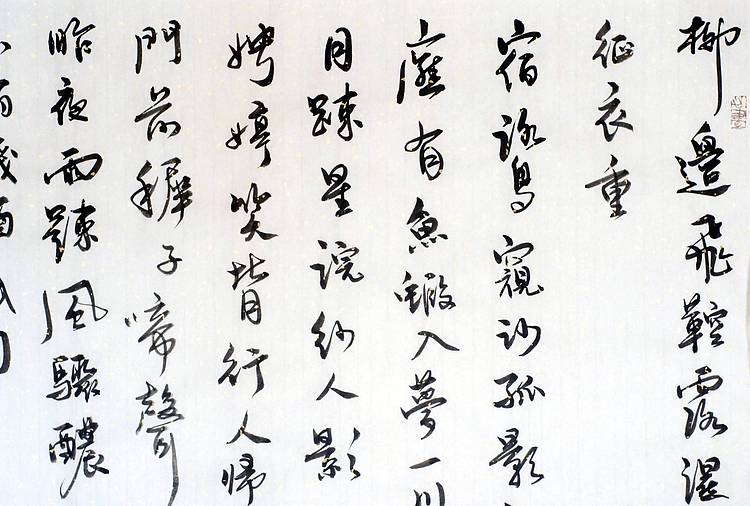 柳邊飛鞚露濕
征衣重
宿鷺窺沙孤影
應有魚蝦入夢一川
月踈星浣紗人影
娉婷笑背行人歸
門前穉子啼聲
昨夜雨踈風驟醲